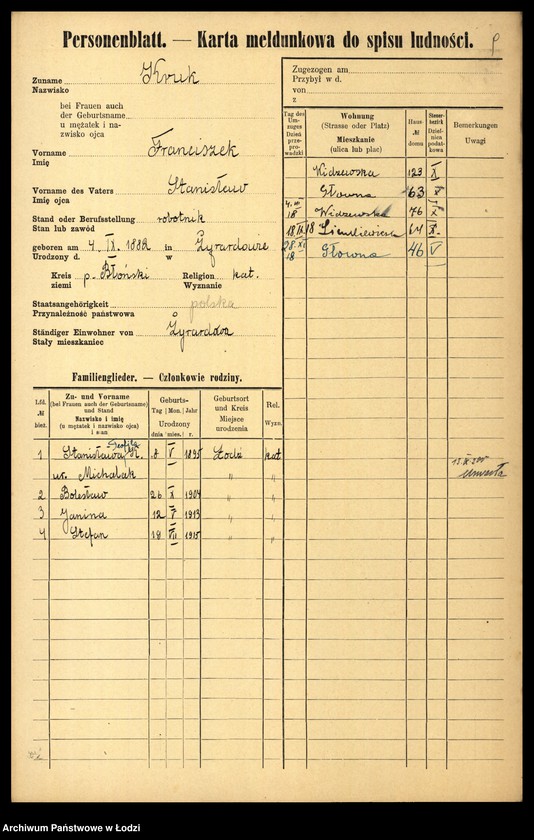 Personenblatt. — Karta meldunkowa do spisu ludności.
Zuname Kruk
Nazwisko
bei Frauen auch
der Geburtsname
u mężatek i na-
zwisko ojca
Vorname Franciszek
Imię
Vorname des Vaters Stanisław
Imię ojca
Stand oder Berufsstellung robotnik
Stan lub zawód
geboren am 4. IX. 1882 in Żyrardowie
Urodzony d. w
Kreis p. Błoński Religion kat.
ziemi Wyznanie
Staatsangehörigkeit polska
Przynależność państwowa
Ständiger Einwohner von Żyrardowa
Stały mieszkaniec
Zugezogen am
Przybył w d.
von
z
Tag des Umzuges Dzień przeprowadzki
Wohnung (Strasse oder Platz) Mieszkanie (ulica lub plac)
Haus- № domu
Steuerbezirk Dzielnica podatkowa
Bemerkungen Uwagi
Widzewska 123 X
Główna 63 X
4. III 18 Widzewska 76 X
18 IX 18 Sienkiewicza 64 X.
28. XI 18 Główna 46 V
Familienglieder. — Członkowie rodziny.
Lfd. № bież.
Zu- und Vorname (bei Frauen auch der Geburtsname) und Stand Nazwisko i imię (u mężatek i nazwisko ojca) i stan
Geburts- Tag | Mon. | Jahr Urodzony dnia mies. r.
Geburtsort und Kreis Miejsce urodzenia
Rel. Wyzn.
1 Stanisława K. 8 V 1895 Łódź kat
ur. Michalak " "
umarła
2 Bolesław 26 X 1904 " "
3 Janina 12 V 1913 " "
4 Stefan 18 VII 1915 " "
Archiwum Państwowe w Łodzi